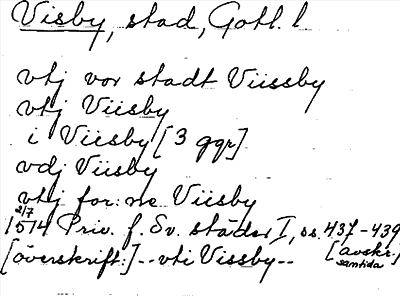 Visby, stad, Gotl. l
vtj vor stadt Viissby
vtj Viisby
i Viisby [3 ggr]
vdj Viisby
vtj for:ne Viisby
2/7
1574 Priv. f. Sv. städer I, ss. 437-439
[överskrift:] -- vti Vissby -- [avskr.
samtida